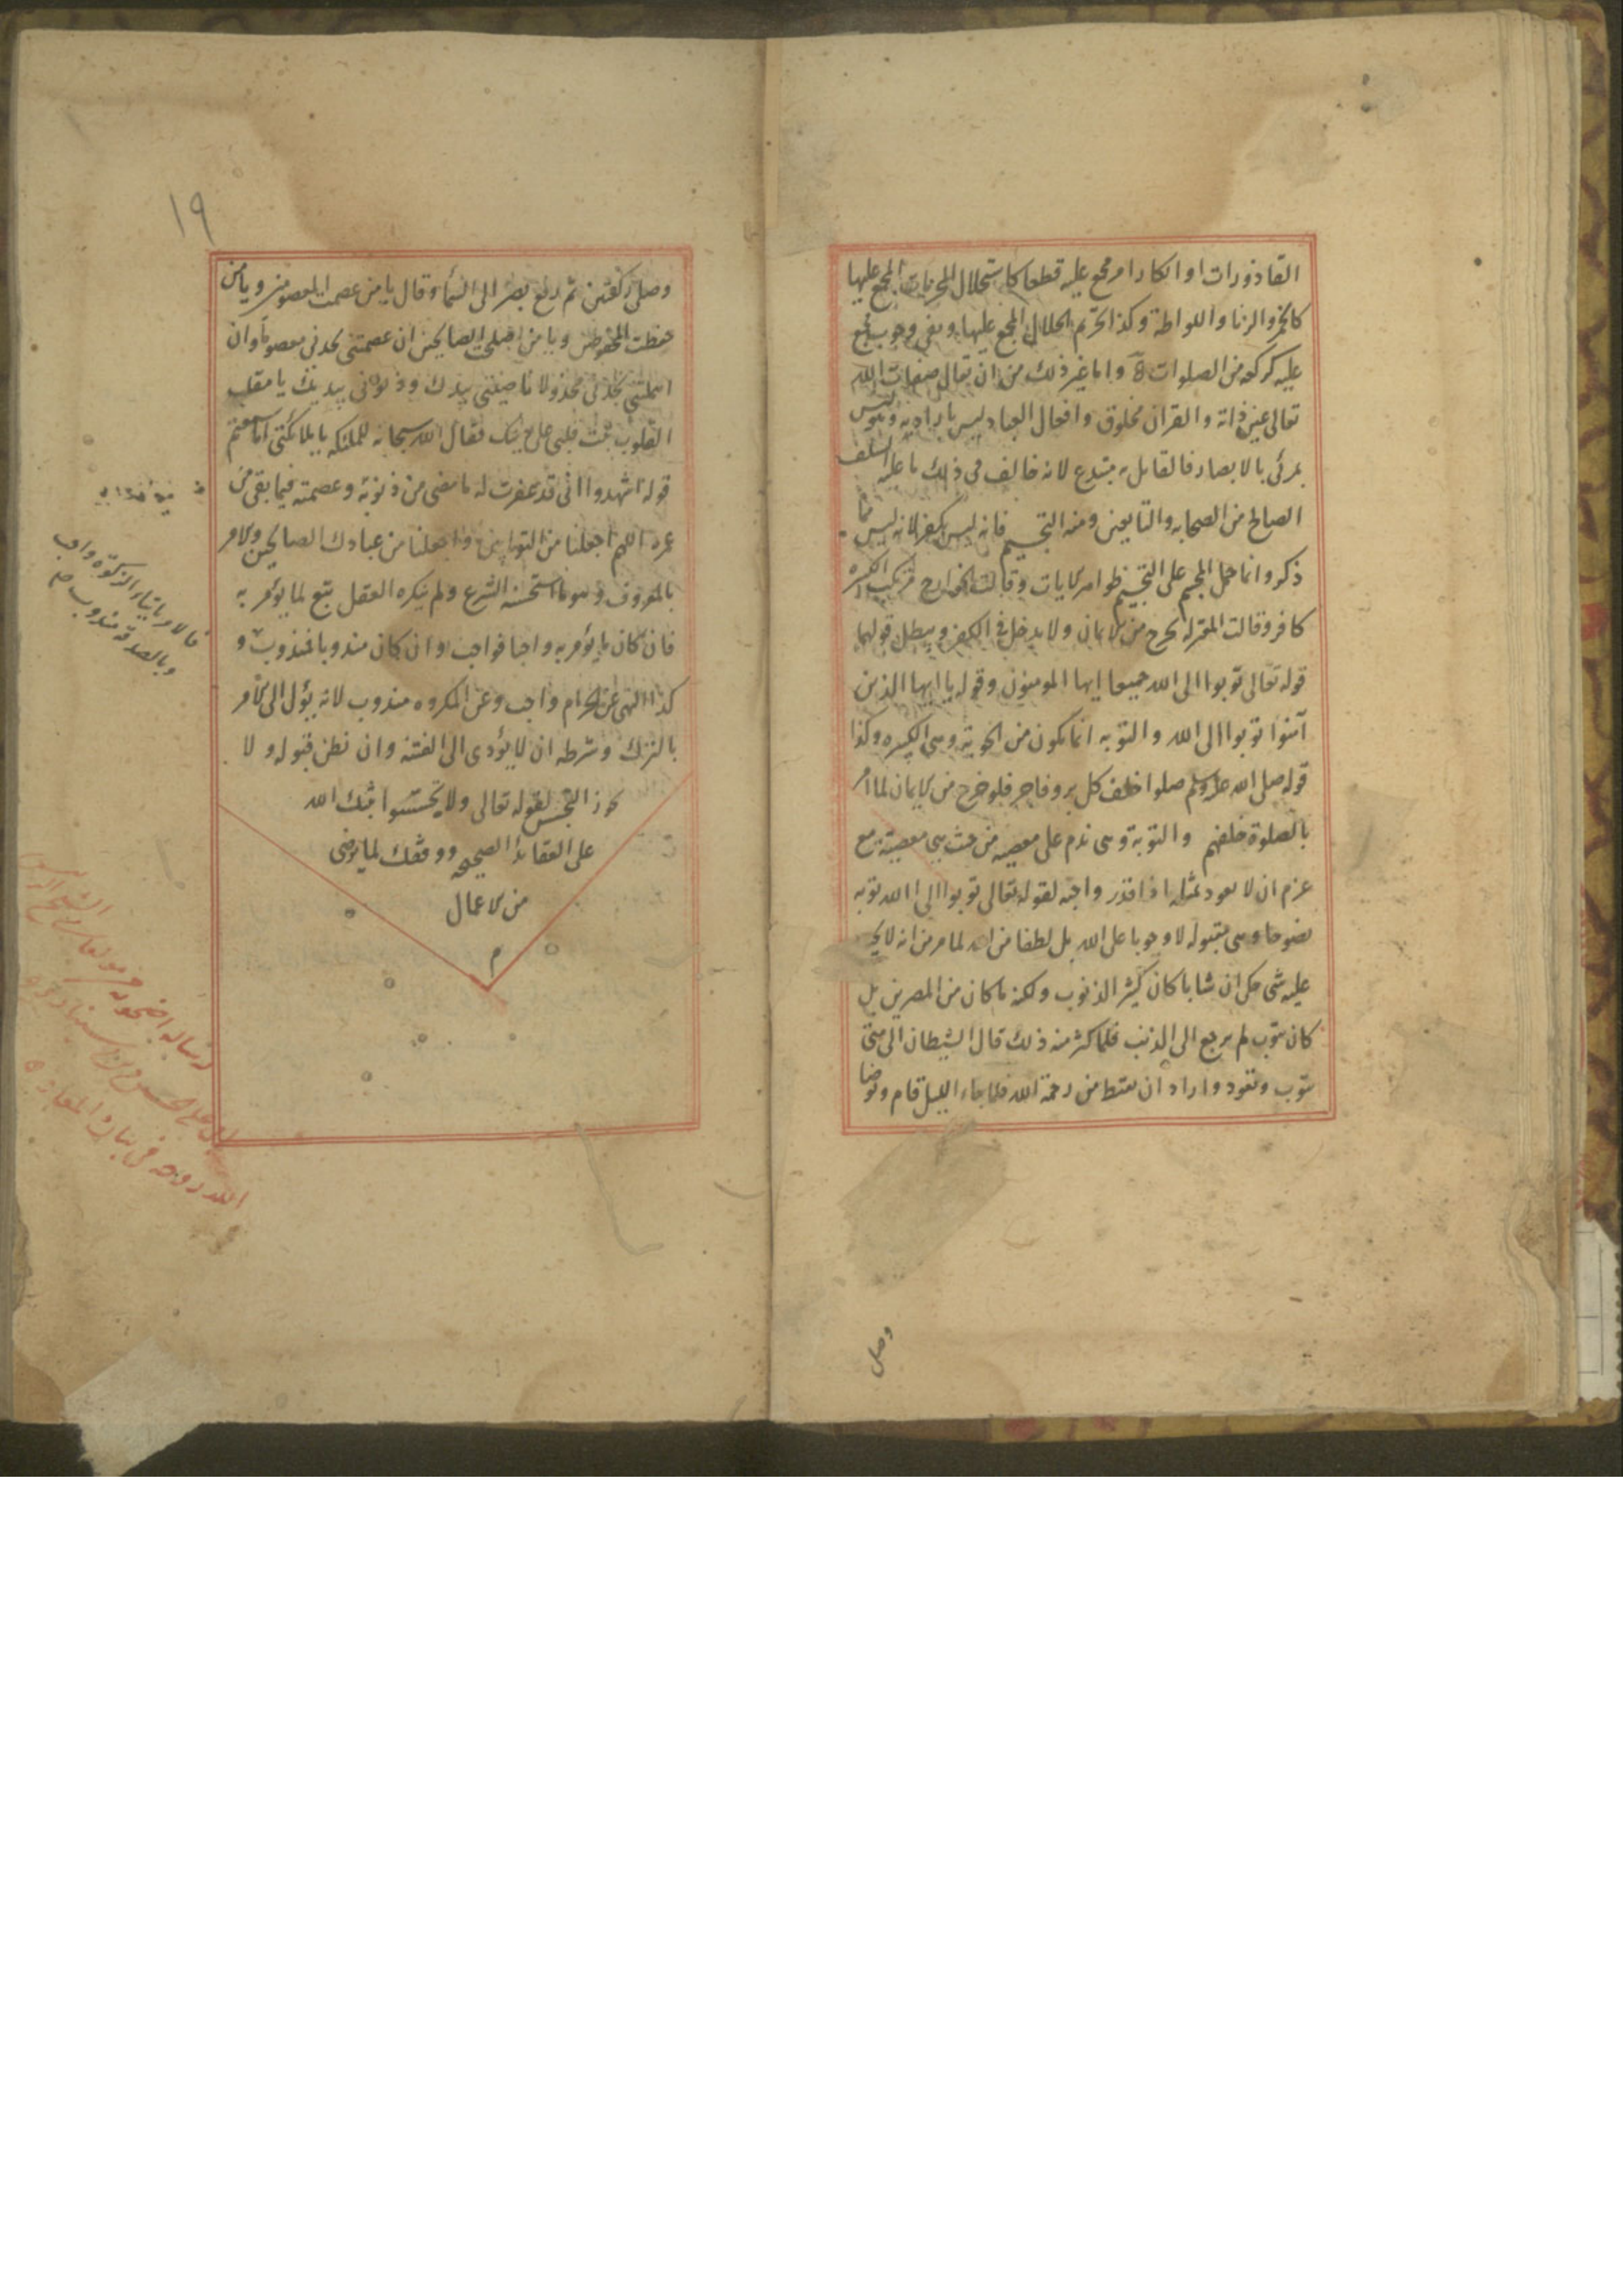 القاذورات او انكار امر مجمع عليه قطعا كاستحلال المحرمات المجمع عليها
كالخمر والزنا واللواطة وكذا تحريم الحلال المجمع عليها ونفى وجوب مجمع
عليه كركعة من الصلوات واما غير ذلك من ان يقال صفات الله
تعالى عين ذاته والقران مخلوق وافعال العباد ليس بارادته وهو ليس
بمرئى بالابصار فالقايل به مبتدع لانه خالف فى ذلك ما عليه السلف
الصالح من الصحابه والتابعين ومنه التجسيم فانه ليس بكفر لانه ليس مما
ذكر وانما حمل المجسم على التجسيم ظوامر الايات وقالت الخوارج مرتكب الكبيره
كافر وقالت المعتزله يخرج من الايمان ولا يدخل فى الكفر ويبطل قولهما
قوله تعالى توبوا الى الله جميعا ايها المومنون وقوله يا ايها الذين
آمنوا توبوا الى الله والتوبه انما يكون من الحوبة وهى الكبيره وكذا
قوله صلى الله عليه وسلم صلوا خلف كل بر وفاجر فلو خرج من الايمان لما امر
بالصلوة خلفهم والتوبة وهى ندم على معصيه من حيث هى معصية مع
عزم ان لا يعود لمثلها اذا قدر واجبه لقوله تعالى توبوا الى الله توبه
نصوحا وهى مقبوله لا وجوبا على الله بل لطفا من الله لما مر من انه لا يجب
عليه شى حكى ان شابا كان كثير الذنوب ولكنه ما كان من المصرين بل
كان يتوب ثم يرجع الى الذنب فلما كثر منه ذلك قال الشيطان الى متى
تتوب وتعود واراد ان يقنط من رحمة الله فلما جاء الليل قام وتوضا
وصلى
١٩
وصلى ركعتين ثم رفع بصره الى السماء وقال يا من عصمت المعصومين ويا من
حفظت المحفوظين ويا من اصلحت الصالحين ان عصمتنى تجدنى معصوما وان
اهملتنى تجدنى مخذولا ناصيتى بيدك وذنوبى بيديك يا مقلب
القلوب ثبت قلبى على دينك فقال الله سبحانه للملئكه يا ملائكتى اما سمعتم
قوله اشهدوا انى قد غفرت له ما مضى من ذنوبه وعصمته فيما بقى من
عمره اللهم اجعلنا من التوابين واجعلنا من عبادك الصالحين والامر
بالمعروف وهو ما استحسنه الشرع ولم ينكره العقل تبع لما يؤمر به
فان كان ما يؤمر به واجبا فواجب وان كان مندوبا فمندوب و
كذا النهى عن الحرام واجب وعن المكروه مندوب لانه يؤل الى الامر
بالترك وشرطه ان لا يؤدى الى الفتنه وان نظن قبوله ولا
يجوز التجسس لقوله تعالى ولا تجسسوا ثبتك الله
على العقائد الصحيحه ووفقك لما يرضى
من الاعمال
م
فالامر بايتاء الزكوة واجب
وبالصدقة مندوب